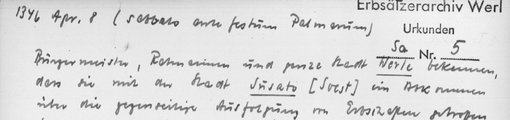 Erbsälzerarchiv Werl
1346 Apr. 8 (sabbato ante festum Palmarum)
Urkunden
Sa Nr. 5
Bürgermeister, Ratmannen und ganze Stadt Werle bekennen,
dass sie mit der Stadt Susato [Soest] ein Abkommen
über die gegenseitige Ausfolgung von Erbschaften getroffen